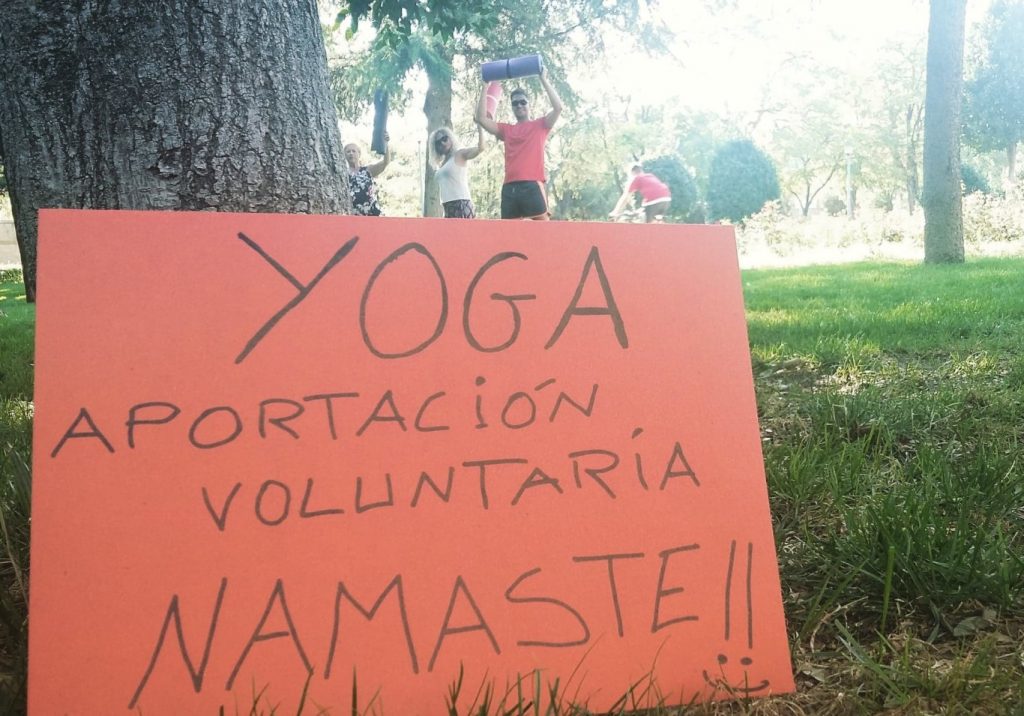 YOGA
APORTACIÓN
VOLUNTARIA
NAMASTE!!